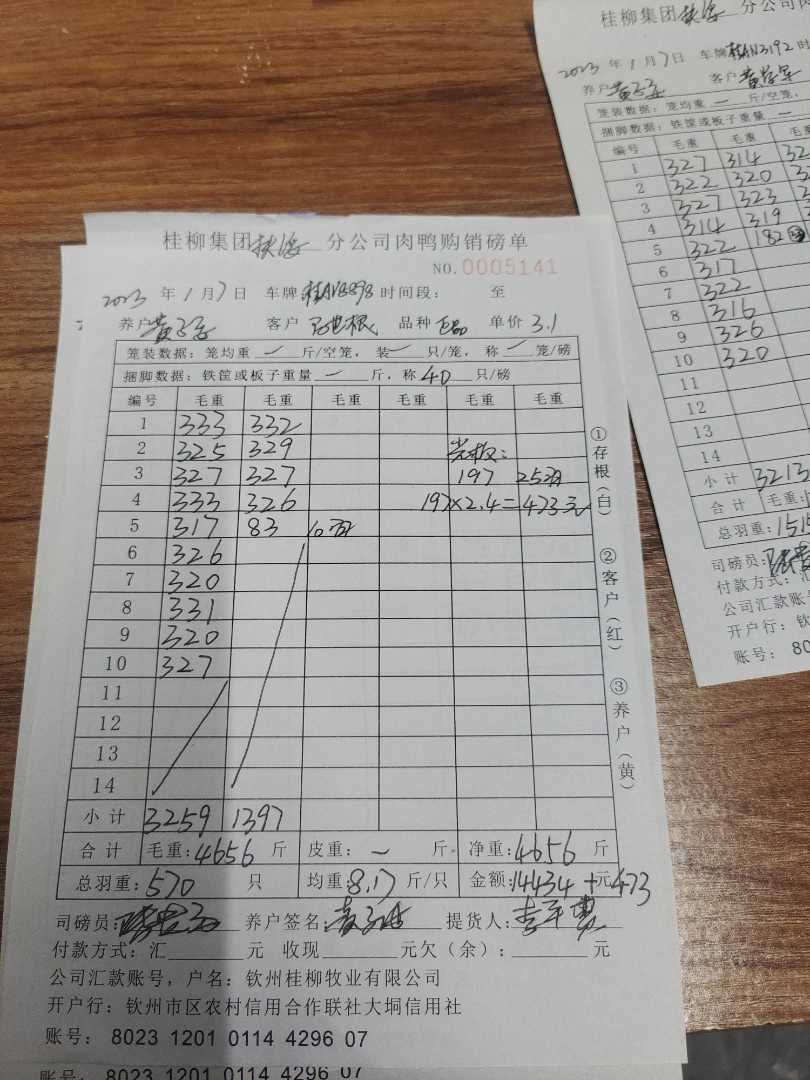 桂柳集团扶海分公司肉鸭购销磅单
NO.0005141
2023年1月7日 车牌桂AV8898时间段： 至
养户黄 客户 根 品种 单价 3.1
笼装数据：笼均重 一 斤/空笼，装 一 只/笼，称 一 笼/磅
捆脚数据：铁筐或板子重量 一 斤，称 40 只/磅
编号 毛重 毛重 毛重 毛重 毛重 毛重
1 333 332
2 325 329 光板：
3 327 327 197 25羽
4 333 326 197×2.4=473元
5 317 83 10羽
6 326
7 320
8 331
9 320
10 327
11
12
13
14
小计 3259 1397
合计 毛重：4656 斤 皮重：一 斤。净重：4656 斤
总羽重：570 只 均重：8.17 斤/只 金额：14434 元+473
①存根（白） ②客户（红） ③养户（黄）
司磅员： 养户签名：黄 提货人：李
付款方式：汇 元 收现 元欠（余）： 元
公司汇款账号，户名：钦州桂柳牧业有限公司
开户行：钦州市区农村信用合作联社大垌信用社
账号： 8023 1201 0114 4296 07
账号： 8023 1201 0114 4296 07
桂柳集团扶海 分公司肉
2023年1月7日 车牌桂AN3192时
养户黄 客户 黄
笼装数据：笼均重 一 斤/空笼，
捆脚数据：铁筐或板子重量 一
编号 毛重 毛重 毛
1 327 314 32
2 322 320
3 327 323
4 314 319
5 322 182
6 317
7 322
8 316
9 326
10 320
11
12
13
14
小计 3213
合计 毛重：
总羽重：1515
司磅员：
付款方式：汇
公司汇款账
开户行：钦
账号： 80